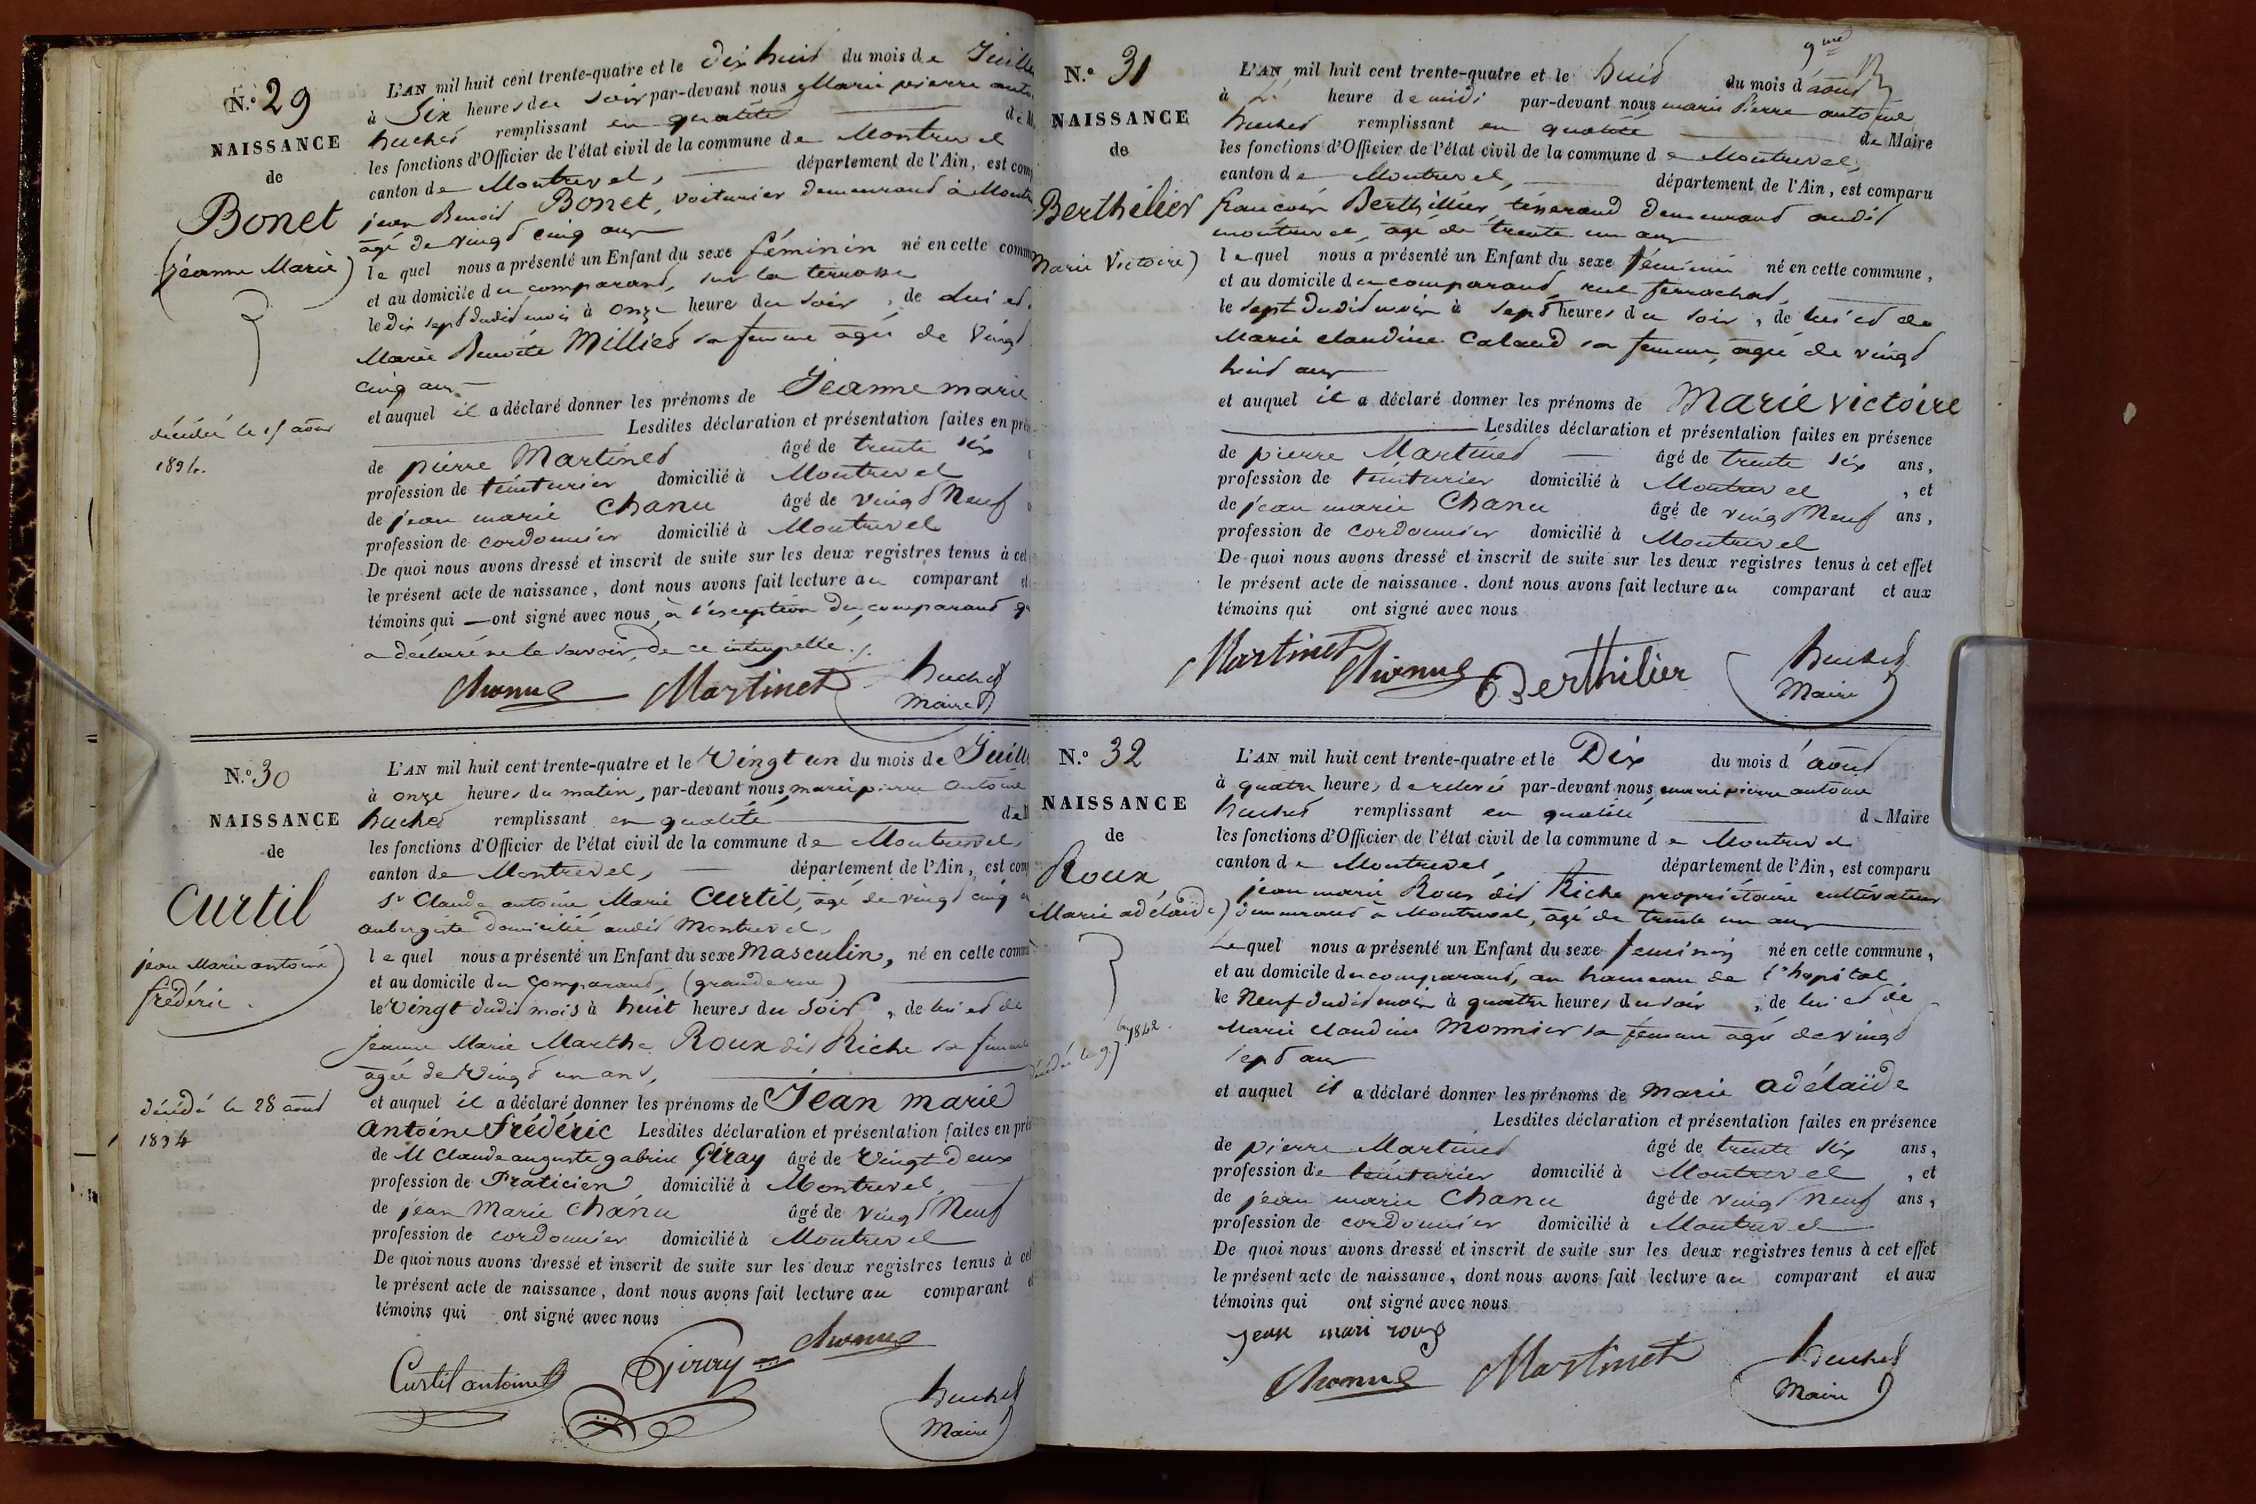 N.º 29
NAISSANCE
de
Bonet
(jéanne Marie)
décédée le 15 août
1834.
L'AN mil huit cent trente-quatre et le dix huit du mois de Juill
à Six heures du soir par-devant nous Marie pierre anto
huchet remplissant en qualité de M
les fonctions d'Officier de l'état civil de la commune de Montrevel
canton de Montrevel, département de l'Ain, est comp
jean Benoit Bonet, voiturier demeurant à Mont
âgé de vingt cinq ans
lequel nous a présenté un Enfant du sexe féminin né en cette commu
et au domicile du comparant, sur la terrasse
le dix sept dudit mois à onze heures du soir, de lui et
Marie Benoite Milliet sa femme agée de Vingt
cinq ans
et auquel il a déclaré donner les prénoms de Jeanne marie
Lesdites déclaration et présentation faites en pré
de pierre Martinet âgé de trente six
profession de teinturier domicilié à Montrevel
de jean marie Chanu âgé de vingt Neuf
profession de cordonnier domicilié à Montrevel
De quoi nous avons dressé et inscrit de suite sur les deux registres tenus à cet
le présent acte de naissance, dont nous avons fait lecture au comparant et
témoins qui ont signé avec nous, à l'exception du comparant q
a déclaré ne le savoir, de ce interpellé ./.
Chanu Martinet huchet
Maire
N.º 30
NAISSANCE
de
Curtil
jean Marie antoine)
frédéric.
décédé le 28 août
1834
L'AN mil huit cent trente-quatre et le Vingt un du mois de Juill
à onze heures du matin, par-devant nous marie pierre Antoine
huchet remplissant en qualité de M
les fonctions d'Officier de l'état civil de la commune de Montrevel,
canton de Montrevel, département de l'Ain, est com
Sr Claude antoine Marie Curtil, âgé de vingt cinq a
aubergiste domicilié audit Montrevel,
lequel nous a présenté un Enfant du sexe Masculin, né en cette comm
et au domicile du Comparant, (grande rue)
le Vingt dudit mois à huit heures du Soir, de lui et de
Jeanne Marie Marthe Roux dit Riche sa femme
agée de Vingt un ans,
et auquel il a déclaré donner les prénoms de Jean marie
Antoine Frédéric Lesdites déclaration et présentation faites en pré
de M Claude auguste gabriel Giray âgé de Vingt deux
profession de Praticien domicilié à Montrevel,
de jean Marie Chanu âgé de vingt Neuf
profession de cordonnier domicilié à Montrevel
De quoi nous avons dressé et inscrit de suite sur les deux registres tenus à cet
le présent acte de naissance, dont nous avons fait lecture au comparant e
témoins qui ont signé avec nous
Curtil antoine Giray Chanu huchet
Maire
N.º 31
NAISSANCE
de
Berthélier
Marie Victoire)
L'AN mil huit cent trente-quatre et le huit du mois d'août
à heure de midi par-devant nous marie Pierre antoine
huchet remplissant en qualité de Maire
les fonctions d'Officier de l'état civil de la commune de Montrevel,
canton de Montrevel, département de l'Ain, est comparu
francois Berthillier, tisserand demeurant audit
montrevel, agé de trente un ans
lequel nous a présenté un Enfant du sexe féminin né en cette commune,
et au domicile du comparant, rue ferrachat,
le sept dudit mois à sept heures du soir, de lui et de
Marie claudine Caland sa femme, agée de vingt
huit ans
et auquel il a déclaré donner les prénoms de Marie victoire
Lesdites déclaration et présentation faites en présence
de pierre Martinet âgé de trente six ans,
profession de teinturier domicilié à Montrevel, et
de jean marie Chanu âgé de vingt Neuf ans,
profession de cordonnier domicilié à Montrevel
De quoi nous avons dressé et inscrit de suite sur les deux registres tenus à cet effet
le présent acte de naissance, dont nous avons fait lecture au comparant et aux
témoins qui ont signé avec nous
Martinet Chanu Berthilier huchet
Maire
N.º 32
NAISSANCE
de
Roux
Marie adélaïde)
L'AN mil huit cent trente-quatre et le Dix du mois d'août
à quatre heures de relevée par-devant nous marie pierre antoine
huchet remplissant en qualité de Maire
les fonctions d'Officier de l'état civil de la commune de Montrevel
canton de Montrevel, département de l'Ain, est comparu
jean marie Roux dit Riche propriétaire cultivateur
demeurant à Montrevel, âgé de trente un ans
Lequel nous a présenté un Enfant du sexe feminin né en cette commune,
et au domicile du comparant, au hameau de l'hopital,
le Neuf dudit mois à quatre heures du soir, de lui et de
Marie claudine Monnier sa femme agée de vingt
sept ans
et auquel il a déclaré donner les prénoms de Marie adélaïde
Lesdites déclaration et présentation faites en présence
de pierre Martinet âgé de trente six ans,
profession de teinturier domicilié à Montrevel, et
de jean marie Chanu âgé de vingt neuf ans,
profession de cordonnier domicilié à Montrevel
De quoi nous avons dressé et inscrit de suite sur les deux registres tenus à cet effet
le présent acte de naissance, dont nous avons fait lecture au comparant et aux
témoins qui ont signé avec nous
jean mari roux
Chanu Martinet huchet
Maire